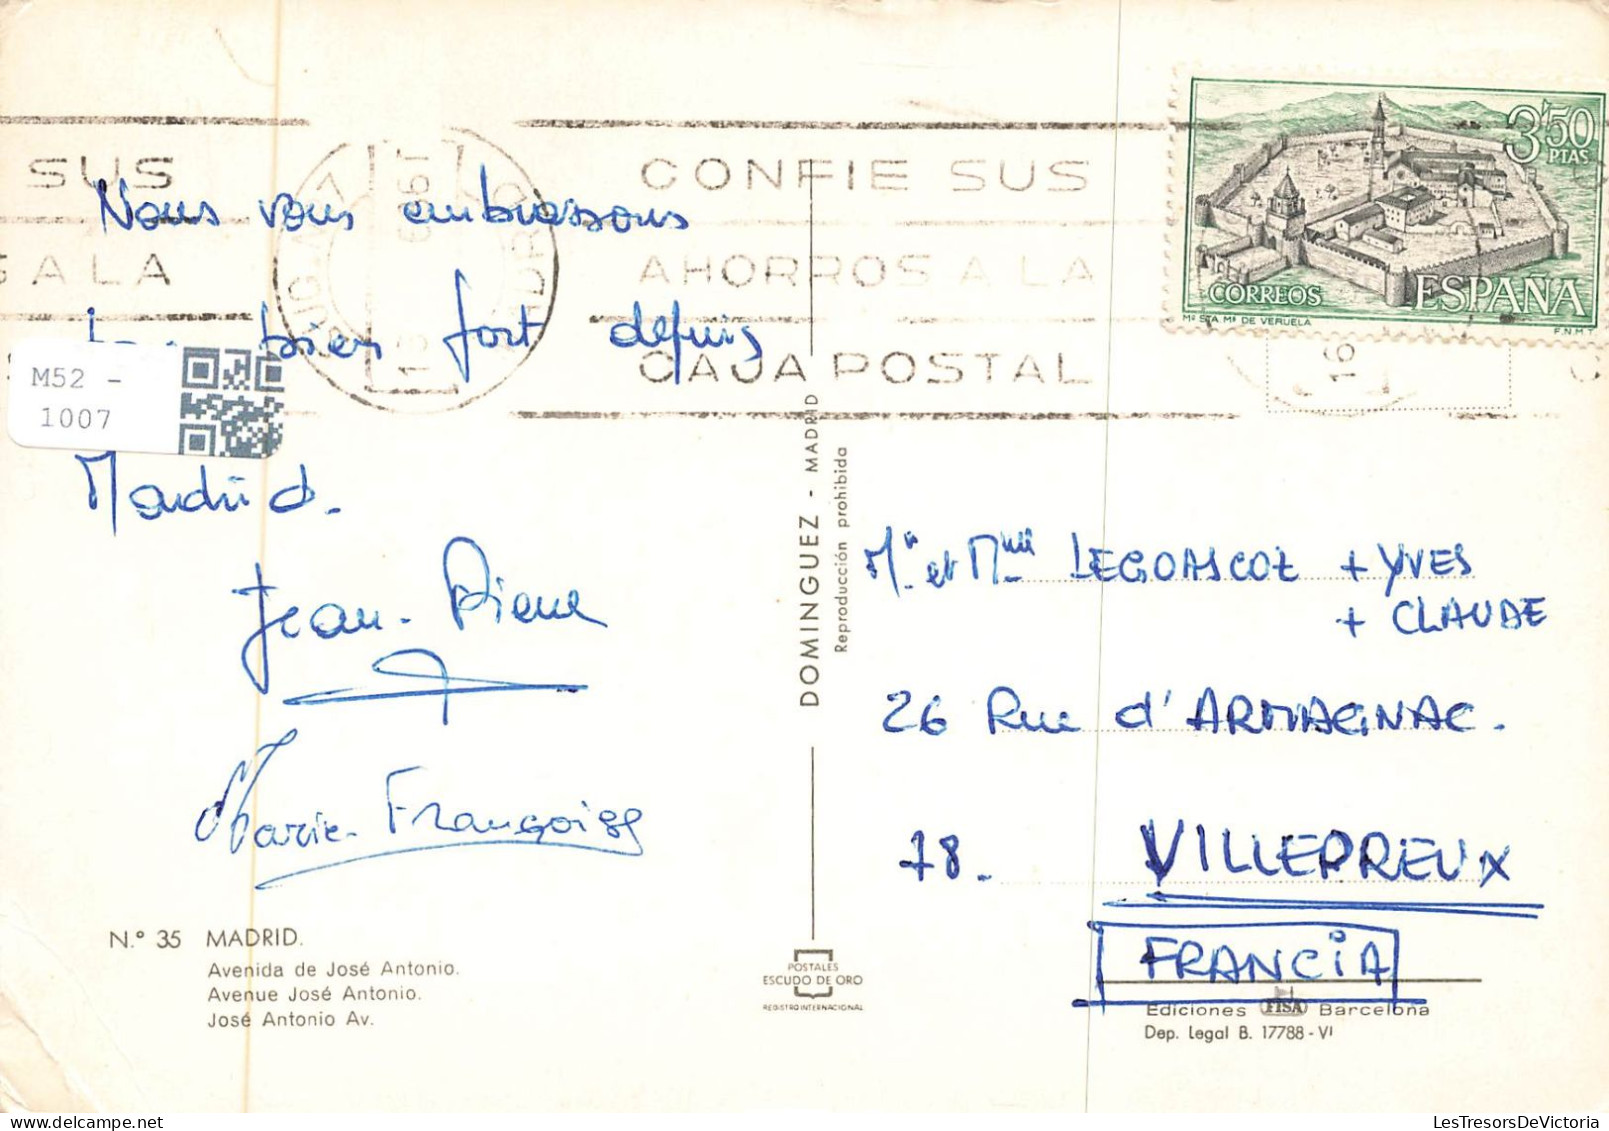 SUS
CONFIE SUS
A LA
AHORROS A LA
CAJA POSTAL
MADRID
3'50
PTAS
CORREOS
ESPAÑA
Mº STA. Mª DE VERUELA
F.N.M.T.
16
Nous vous embrassons
bien fort depuis
Madrid.
Jean-Pierre
Marie-Françoise
M52 -
1007
Nº 35 MADRID.
Avenida de José Antonio.
Avenue José Antonio.
José Antonio Av.
DOMINGUEZ - MADRID
Reproducción prohibida
POSTALES
ESCUDO DE ORO
REGISTRO INTERNACIONAL
Mr et Mme LEGOASCOZ + YVES
+ CLAUDE
26 Rue d'ARMAGNAC.
78. VILLEPREUX
FRANCIA
Ediciones FISA Barcelona
Dep. Legal B. 17788-VI
LesTresorsDeVictoria